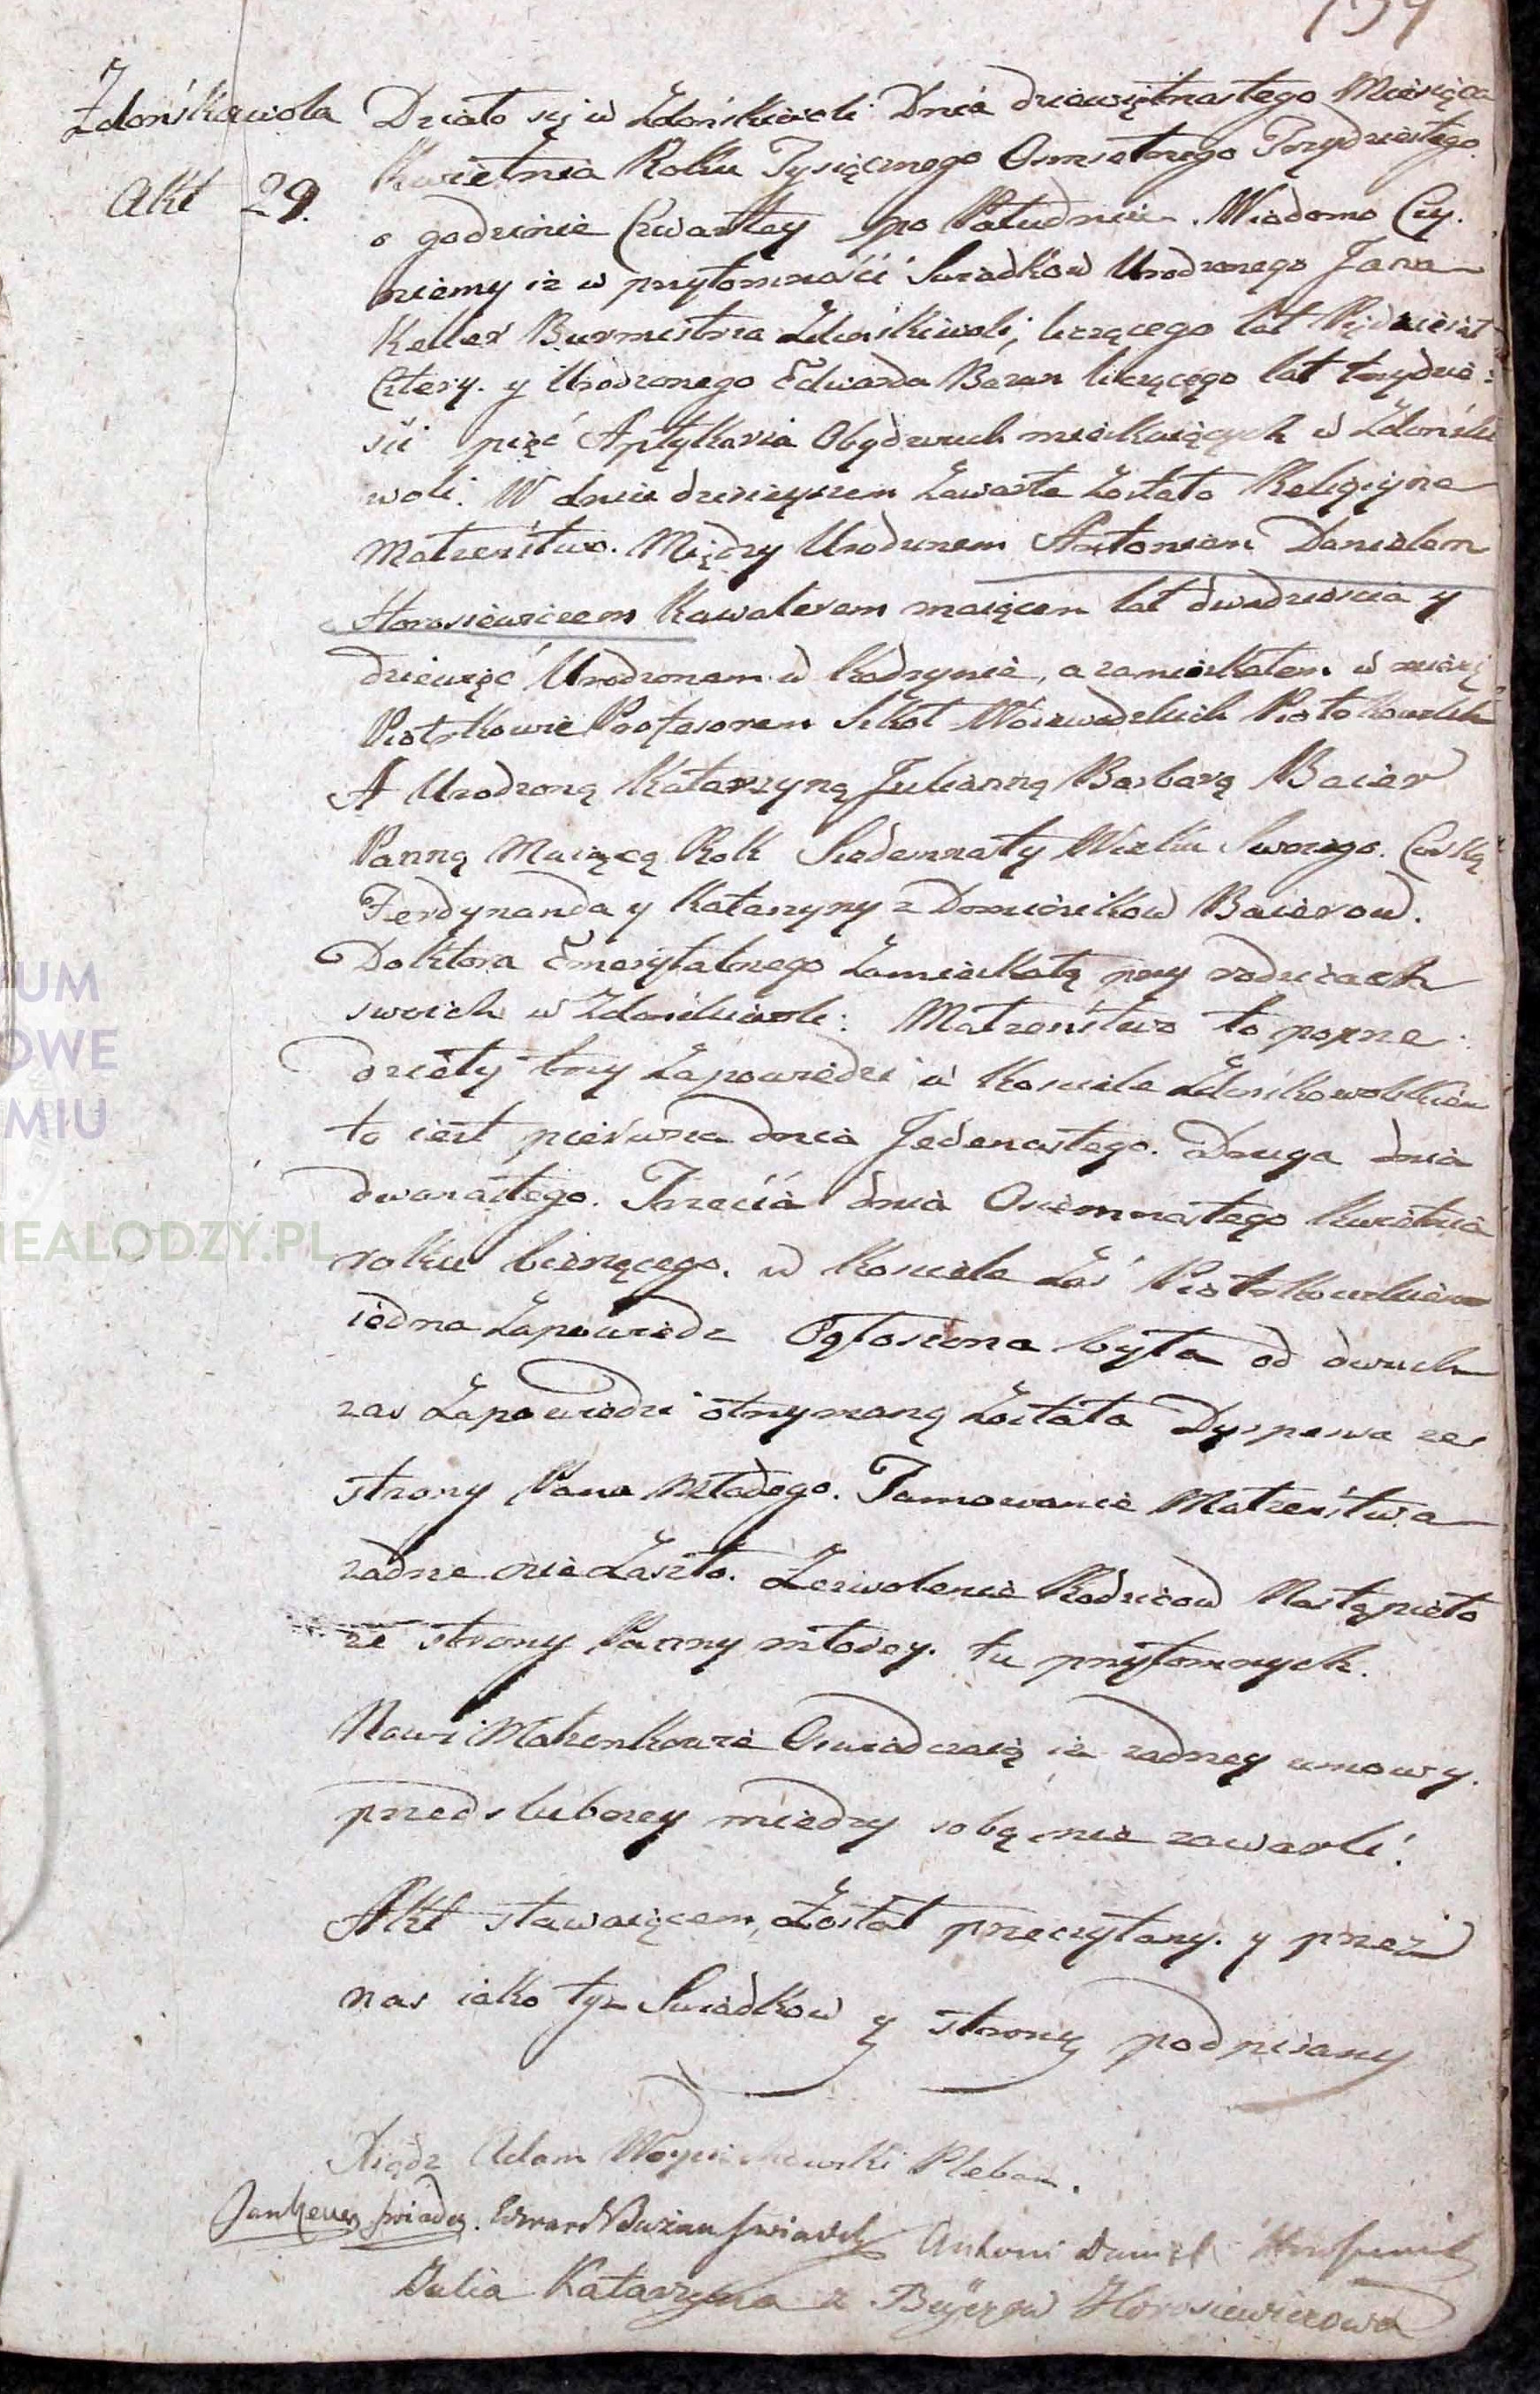 Zdońskawola
Akt 29.
Działo się w Zdońskiwoli Dnia dziewiętnastego Miesiąca
Kwietnia Roku Tysiącznego Osmsetnego Trzydziestego
o godzinie Czwartey po Południu. Wiadomo Czy.
niemy iż w przytomności Swiadków Urodzonego Jana
Keller Burmistrza Zdońskiwoli, liczącego lat Pięćdziesiąt
Cztery. y Urodzonego Edwarda Bazan liczącego lat trzydzie:
ści pięć Aptykarza Obydwuch mieszkaiących w Zdoński
woli. W dniu dzisieyszem Zawarte Zostało Religijne
Małżeństwo. Między Urodzonem Antoniem Danielem
Horosiewiczem Kawalerem maiącem lat dwadzieścia y
dziewięć Urodzonem w Kodzynie, a zamieszkałem w mieście
Piotrkowie Profesorem Szkół Woiewodzkich Piotrkowskich
A Urodzoną Katarzyną Julianną Barbarą Baier
Panną Maiącą Rok Siedemnasty Wieku Swoiego. Corką
Ferdynanda y Katarzyny z Domierików Baierow.
Doktora Emerytalnego Zamieszkałą przy rodzicach
swoich w Zdońskiwoli: Małżeństwo to poprze:
dziely trzy Zapowiedzi w Kosciele Zdońskowolskiem
to iest pierwsza dnia Jedenastego. Druga dnia
dwunastego. Trzecia dnia Osiemnastego Kwietnia
roku bieżącego. w Kosciele Zaś Piotrkowskiem
iedna Zapowiedz Ogłoszona była od dwuch
zas Zapowiedzi otrzymaną Została Dyspensa ze
strony Pana Młodego. Tamowanie Małżeństwa
żadne nie Zaszło. Zezwolenie Rodzicow Nastąpieło
ze strony Panny młodey. tu przytomnych.
Nowi Małżonkowie Oswiadczaią iż żadney umowy.
przedslubney miedzy sobą nie zawarli.
Akt stawaiącem, Został przeczytany. y przez
nas iako tyż Swiadkow y strony podpisany
Xiądz Adam Pleban.
Jan Keller swiadek. Edward Bazan swiadek Antoni Daniel
Julia Katarzyna z Beyerow Horosiewiczowa
UM
OWE
MIU
NEALODZY.PL